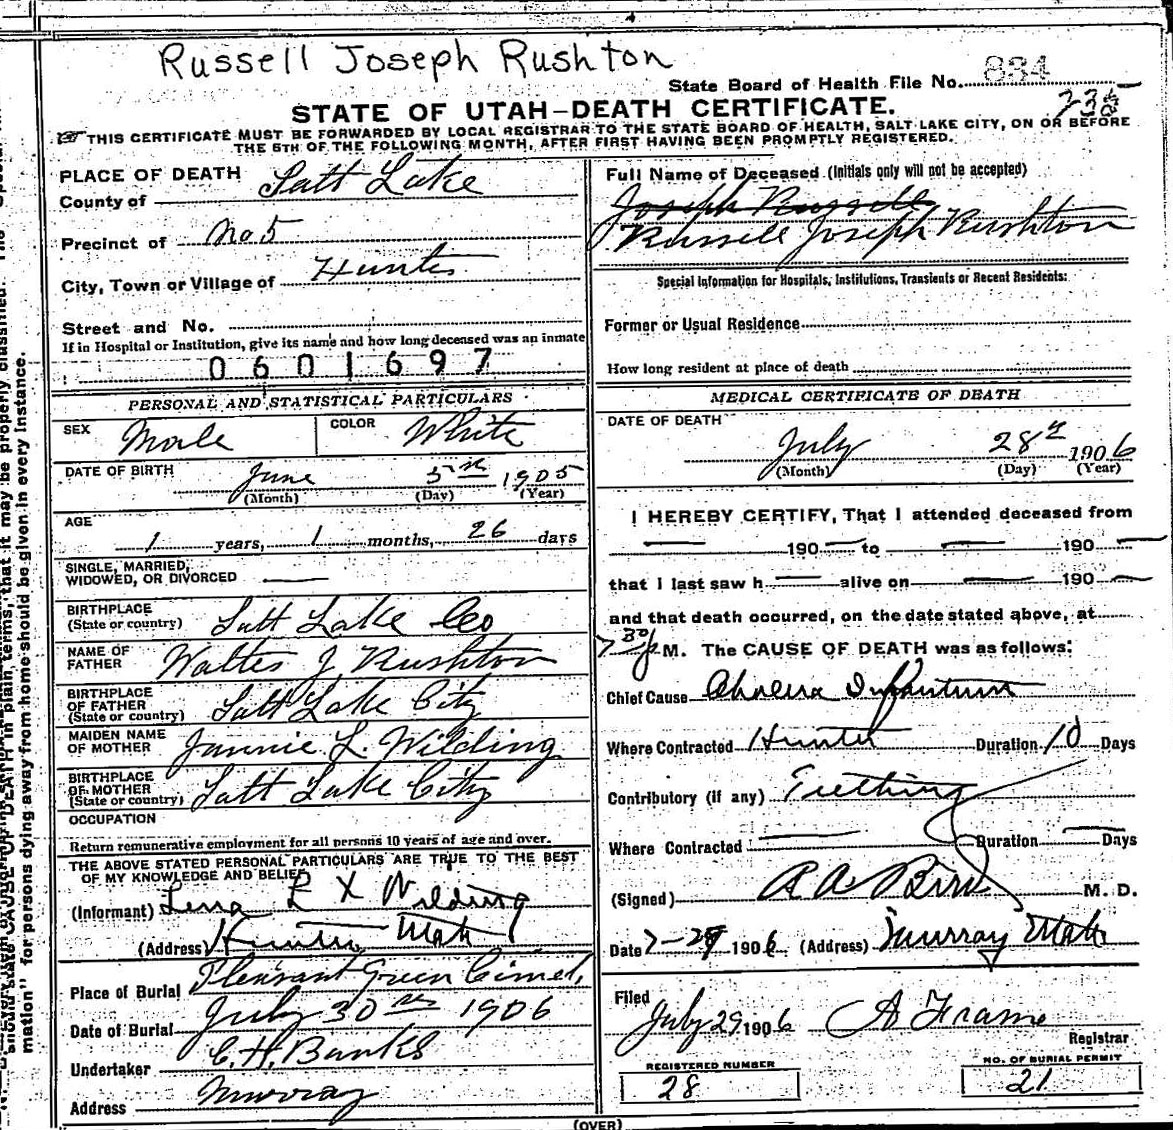 Russell Joseph Rushton
State Board of Health File No. 834
235
STATE OF UTAH-DEATH CERTIFICATE.
THIS CERTIFICATE MUST BE FORWARDED BY LOCAL REGISTRAR TO THE STATE BOARD OF HEALTH, SALT LAKE CITY, ON OR BEFORE
THE 5TH OF THE FOLLOWING MONTH, AFTER FIRST HAVING BEEN PROMPTLY REGISTERED.
PLACE OF DEATH
County of Salt Lake
Precinct of No 5
City, Town or Village of Hunter
Street and No.
If in Hospital or Institution, give its name and how long deceased was an inmate
0601697
PERSONAL AND STATISTICAL PARTICULARS
SEX Male COLOR White
DATE OF BIRTH June 3rd 1905
(Month) (Day) (Year)
AGE
1 years, 1 months, 26 days
SINGLE, MARRIED,
WIDOWED, OR DIVORCED
BIRTHPLACE
(State or country) Salt Lake Co
NAME OF
FATHER Walter J Rushton
BIRTHPLACE
OF FATHER
(State or country) Salt Lake City
MAIDEN NAME
OF MOTHER Jannie L. Wilding
BIRTHPLACE
OF MOTHER
(State or country) Salt Lake City
OCCUPATION
Return remunerative employment for all persons 10 years of age and over.
THE ABOVE STATED PERSONAL PARTICULARS ARE TRUE TO THE BEST
OF MY KNOWLEDGE AND BELIEF
(Informant) Lena L X Wilding
(Address) Hunter Utah
Place of Burial Pleasant Green Cimet,
Date of Burial July 30 1906
Undertaker C. H. Banks
Address Murray
Full Name of Deceased (Initials only will not be accepted)
Joseph Russell
Russell Joseph Rushton
Special Information for Hospitals, Institutions, Transients or Recent Residents:
Former or Usual Residence
How long resident at place of death
MEDICAL CERTIFICATE OF DEATH
DATE OF DEATH
July 28th 1906
(Month) (Day) (Year)
I HEREBY CERTIFY, That I attended deceased from
190 to 190
that I last saw h alive on 190
and that death occurred, on the date stated above, at
7 30 P M. The CAUSE OF DEATH was as follows:
Chief Cause Cholera Infantum
Where Contracted Hunter Duration 10 Days
Contributory (if any) Teething
Where Contracted Duration Days
(Signed) R A Bird M. D.
Date 7-29 1906 (Address) Murray Utah
Filed
July 29 1906 A Frame
Registrar
REGISTERED NUMBER
28
NO. OF BURIAL PERMIT
21
(OVER)
should state CAUSE OF DEATH in plain terms, that it may be properly classified.
mation" for persons dying away from home should be given in every instance.